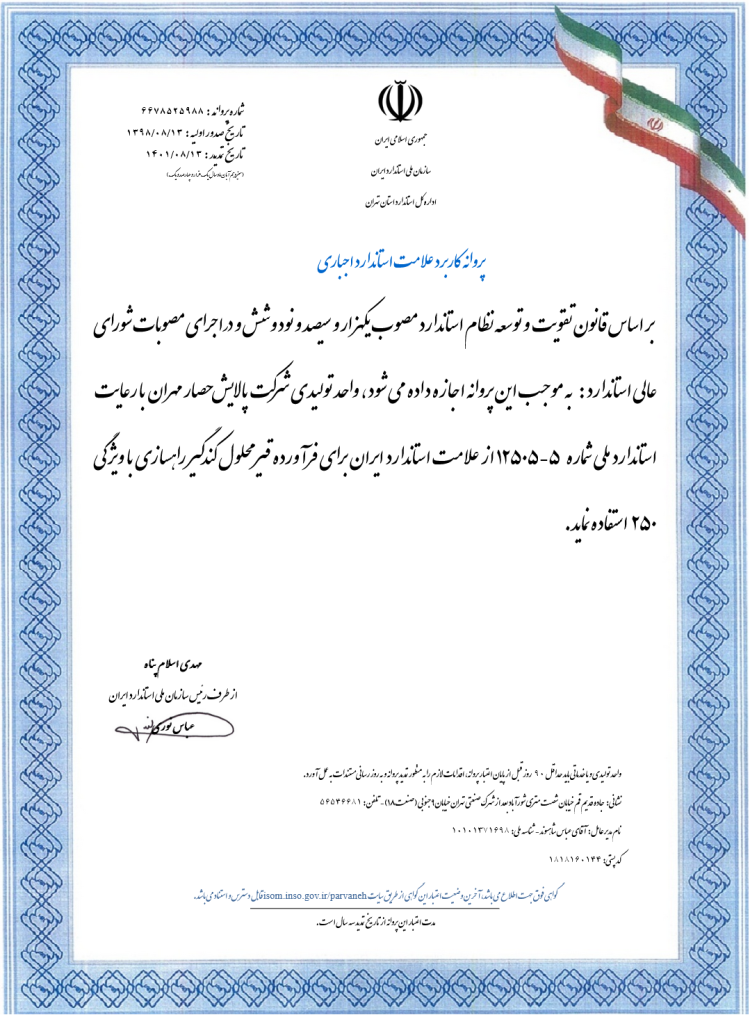 جمهوری اسلامی ایران
سازمان ملی استاندارد ایران
اداره کل استاندارد استان تهران
شماره پروانه : ۶۶۷۸۵۲۵۹۸۸
تاریخ صدور اولیه : ۱۳۹۸/۰۸/۱۳
تاریخ تمدید : ۱۴۰۱/۰۸/۱۳
پروانه کاربرد علامت استاندارد اجباری
بر اساس قانون تقویت و توسعه نظام استاندارد مصوب یکهزار و سیصد و نود و شش و در اجرای مصوبات شورای
عالی استاندارد : به موجب این پروانه اجازه داده می شود ، واحد تولیدی شرکت پالایش حصار مهران با رعایت
استاندارد ملی شماره ۵-۱۲۵۰۵ از علامت استاندارد ایران برای فرآورده قیر محلول کندگیر راهسازی با ویژگی
۲۵۰ استفاده نماید.
مهدی اسلام پناه
از طرف رئیس سازمان ملی استاندارد ایران
عباس نوری
واحد تولیدی و یا خدماتی باید حداقل ۹۰ روز قبل از پایان اعتبار پروانه، اقدامات لازم را به منظور تمدید پروانه و به روز رسانی مستندات به عمل آورد.
نشانی : جاده قدیم قم خیابان شصت متری شورآباد بعد از شهرک صنعتی تهران خیابان ۹ جنوبی (صنعت ۱۸) - تلفن : ۵۶۵۴۶۶۸۱
نام مدیر عامل : آقای عباس شاهسوند - شناسه ملی : ۱۰۱۰۱۳۷۱۶۹۸
کد پستی : ۱۸۱۸۱۶۰۱۴۴
گواهی فوق جهت اطلاع می باشد، آخرین وضعیت اعتبار این گواهی از طریق سایت isom.inso.gov.ir/parvaneh قابل دسترس و استناد می باشد.
مدت اعتبار این پروانه از تاریخ تمدید سه سال است.